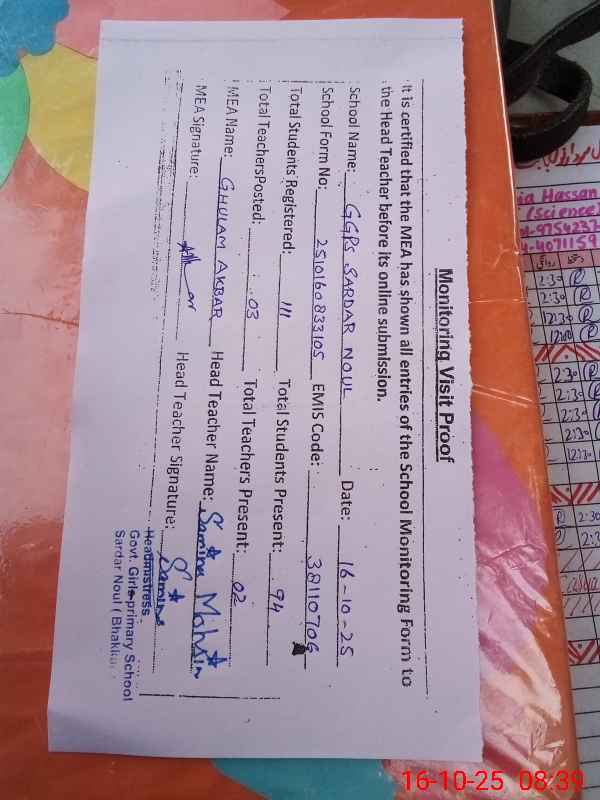 Monitoring Visit Proof
It is certified that the MEA has shown all entries of the School Monitoring Form to
the Head Teacher before its online submission.
School Name: GGPS SARDAR NOUL Date: 16-10-25
School Form No: 2510160833105 EMIS Code: 38110706
Total Students Registered: 111 Total Students Present: 94
Total TeachersPosted: 03 Total Teachers Present: 02
MEA Name: GHULAM AKBAR Head Teacher Name: Samina Mohsin
MEA Signature: Head Teacher Signature: Samina
Headmistress
Govt. Girls primary School
Sardar Noul (Bhakkar
ia Hassan
(Science)
-9754237
-4071159
2:30 P
2:30 P
12:30 P
12:00 P
2:30 P
2:30 P
2:30
2:30 P
12:30
P 2:30
P 2:3
16-10-25 08:39